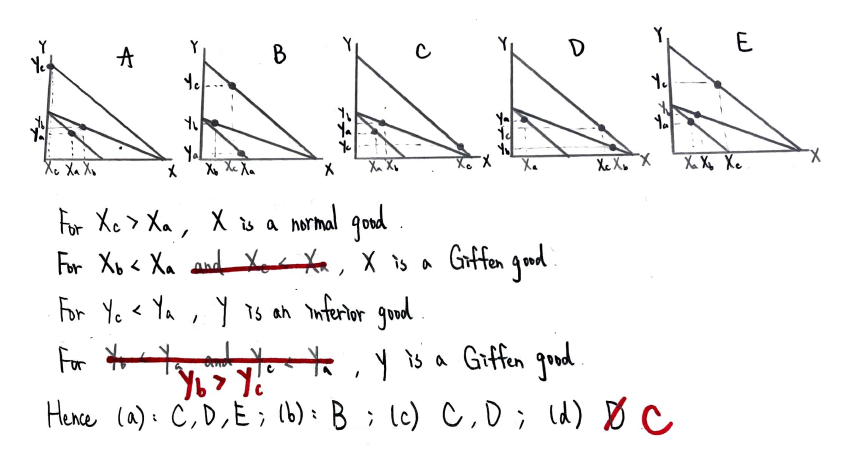 Y A Yc Yb Ya Xc Xa Xb X
Y B Yc Yb Ya Xb Xc Xa X
Y C Yb Ya Yc Xa Xb Xc X
Y D Ya Yc Yb Xa Xc Xb X
Y E Yc Yb Ya Xa Xb Xc X
For Xc > Xa , X is a normal good .
For Xb < Xa and Xc < Xa , X is a Giffen good
For Yc < Ya , Y is an inferior good .
For Yb < Ya and Yc < Ya , Y is a Giffen good
Yb > Yc
Hence (a) : C, D, E ; (b) : B ; (c) C, D ; (d) D C